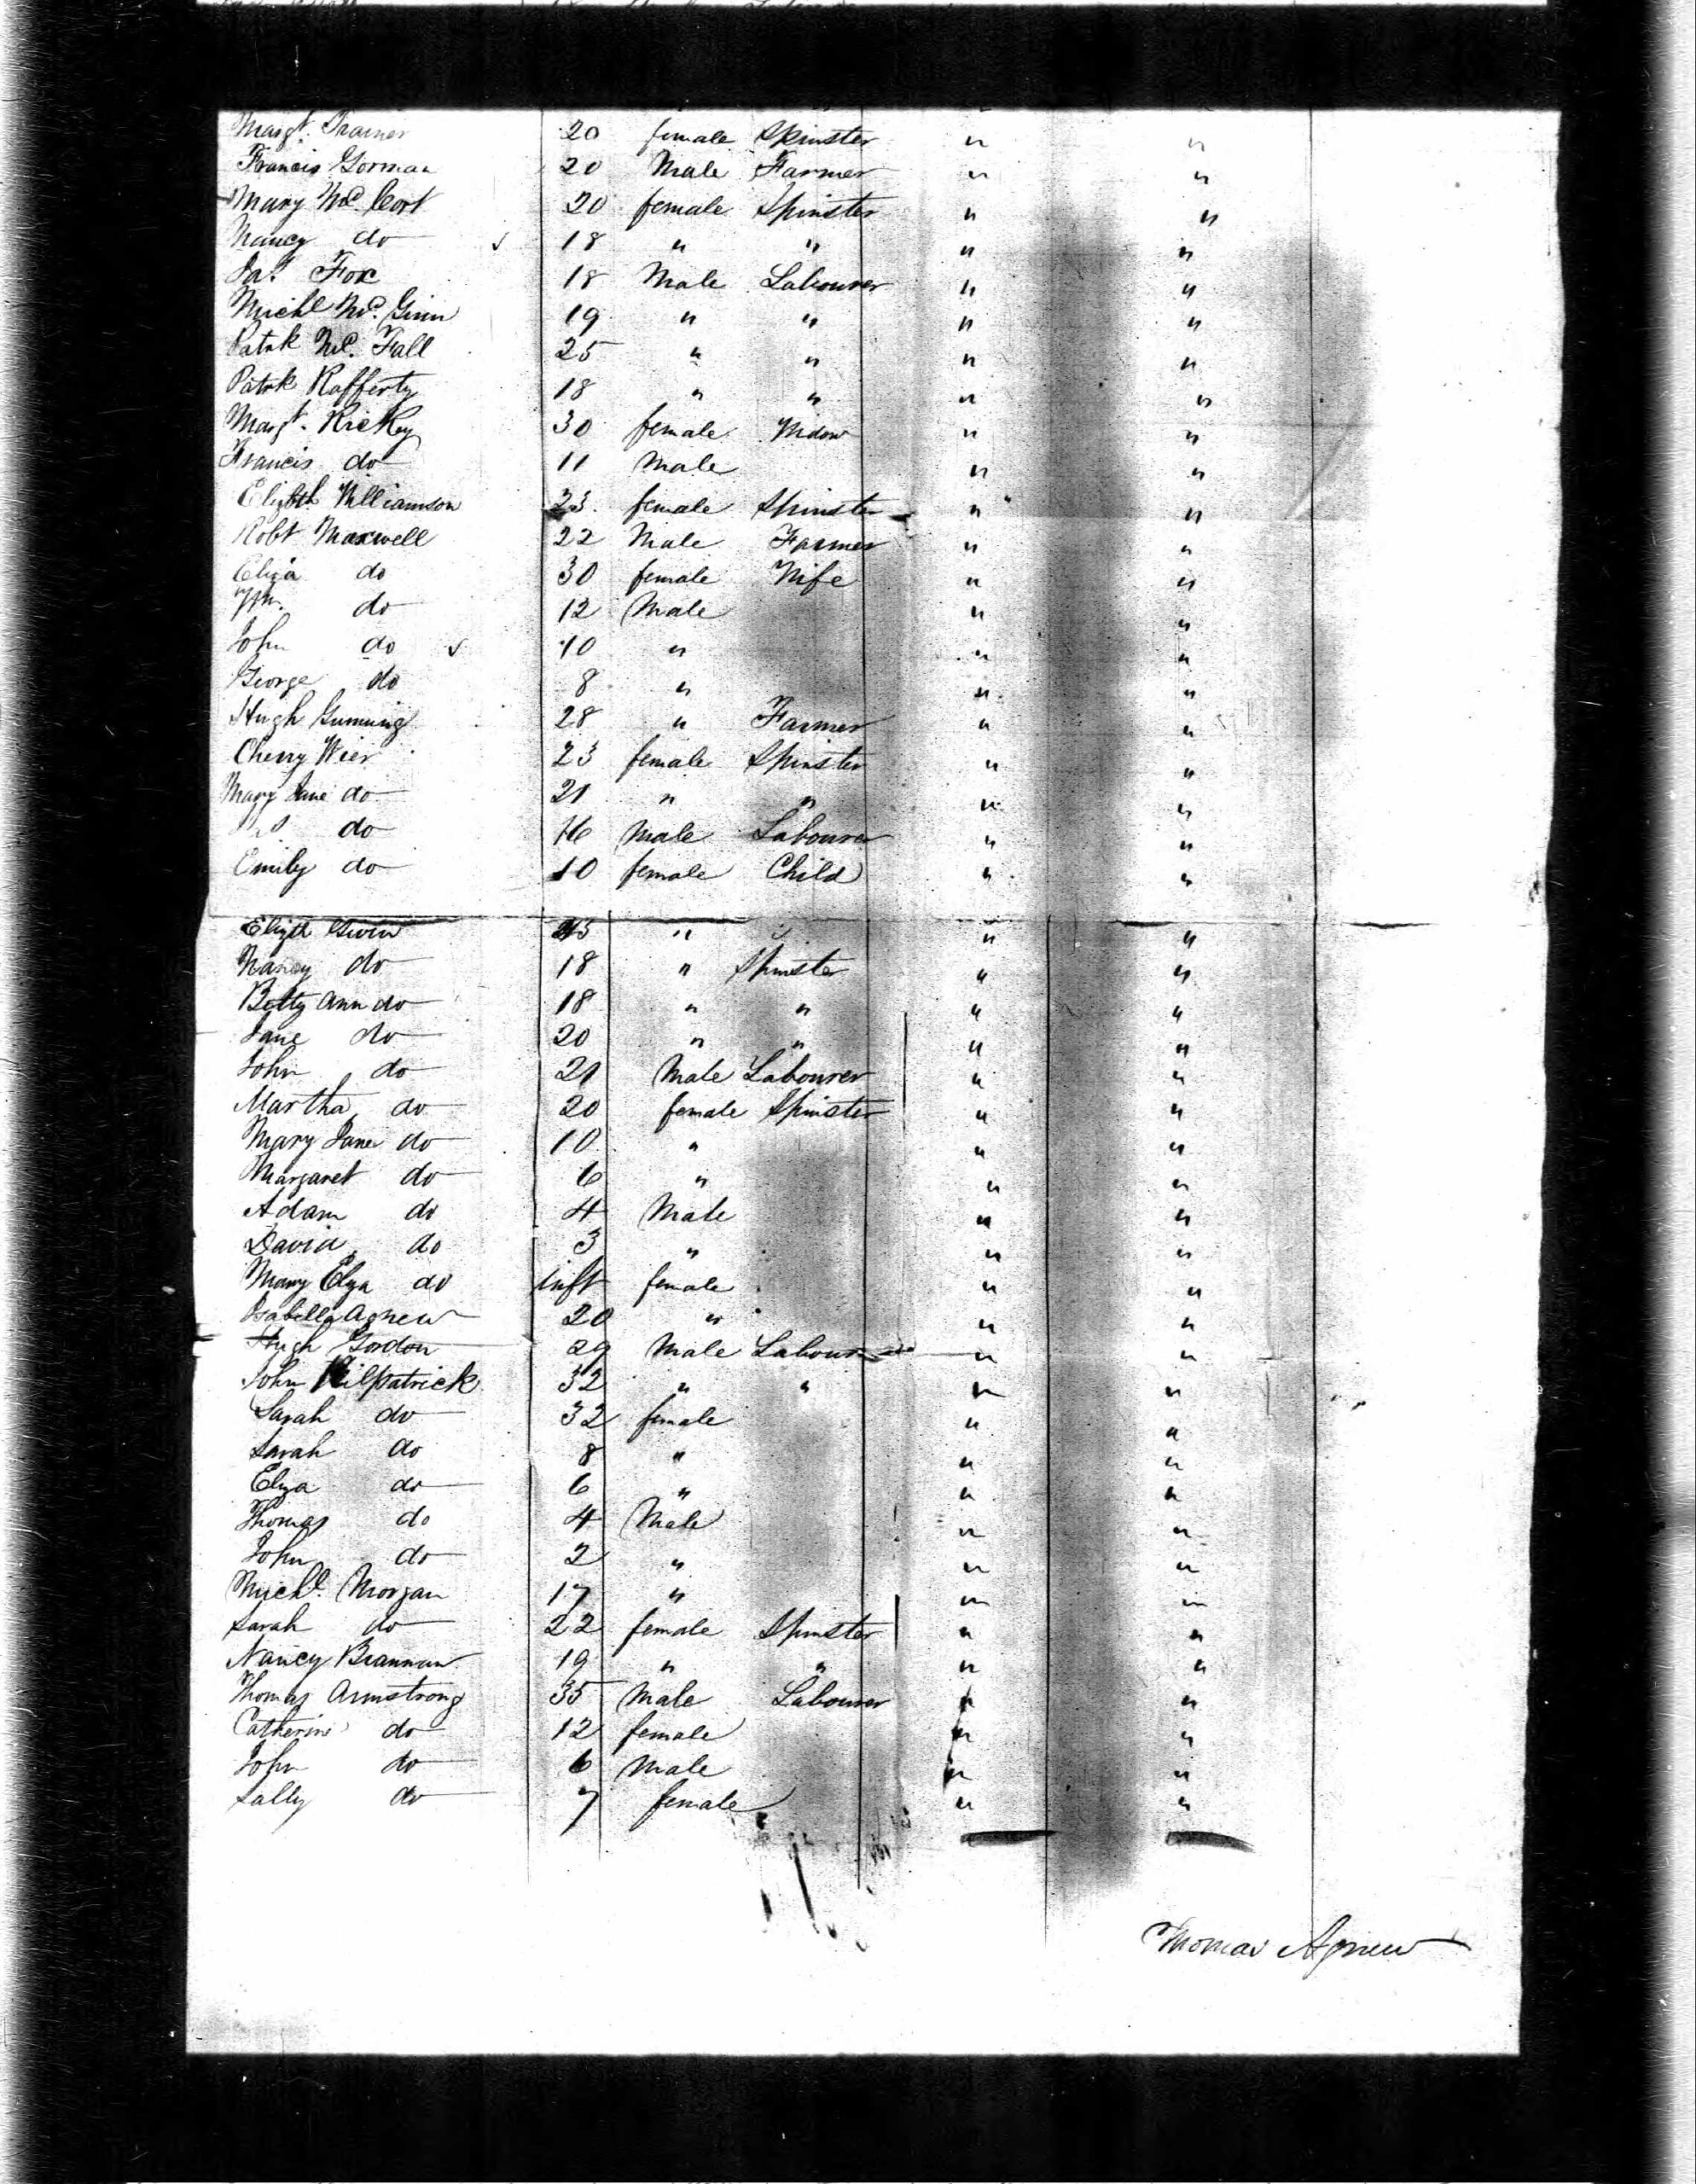 Margt. Trainer 20 female Spinster " "
Francis Gorman 20 Male Farmer " "
Mary Mc. Cort 20 female Spinster " "
Nancy do 18 " " " "
Jas. Fox 18 Male Labourer " "
Michl Mc. Ginn 19 " " " "
Patrk Mc. Fall 25 " " " "
Patrk Rafferty 18 " " " "
Margt. Rickey 30 female Widow " "
Francis do 11 Male " "
Elizbth Williamson 23 female Spinster " "
Robt Maxwell 22 Male Farmer " "
Eliza do 30 female Wife " "
Wm. do 12 Male " "
John do 10 " " "
George do 8 " " "
Hugh 28 " Farmer " "
Cherry Wier 23 female Spinster " "
Mary Jane do 21 " " " "
do 16 Male Labourer " "
Emily do 10 female Child " "
Elizth " " "
Nancy do 18 " Spinster " "
Betty Ann do 18 " " " "
Jane do 20 " " " "
John do 21 Male Labourer " "
Martha do 20 female Spinster " "
Mary Jane do 10 " " "
Margaret do 6 " " "
Adam do 4 Male " "
David do 3 " " "
Mary Elza do inft female " "
Isabella Agnew 20 " " "
Hugh Gordon 29 Male Labourer " "
John Kilpatrick 32 " " " "
Sarah do 32 female " "
Sarah do 8 " " "
Elza do 6 " " "
Thomas do 4 Male " "
John do 2 " " "
Michl. Morgan 17 " " "
Sarah do 22 female Spinster " "
Nancy Brannan 19 " " " "
Thomas Armstrong 35 Male Labourer " "
Catherine do 12 female " "
John do 6 Male " "
Sally do 7 female " "
Thomas Agnew